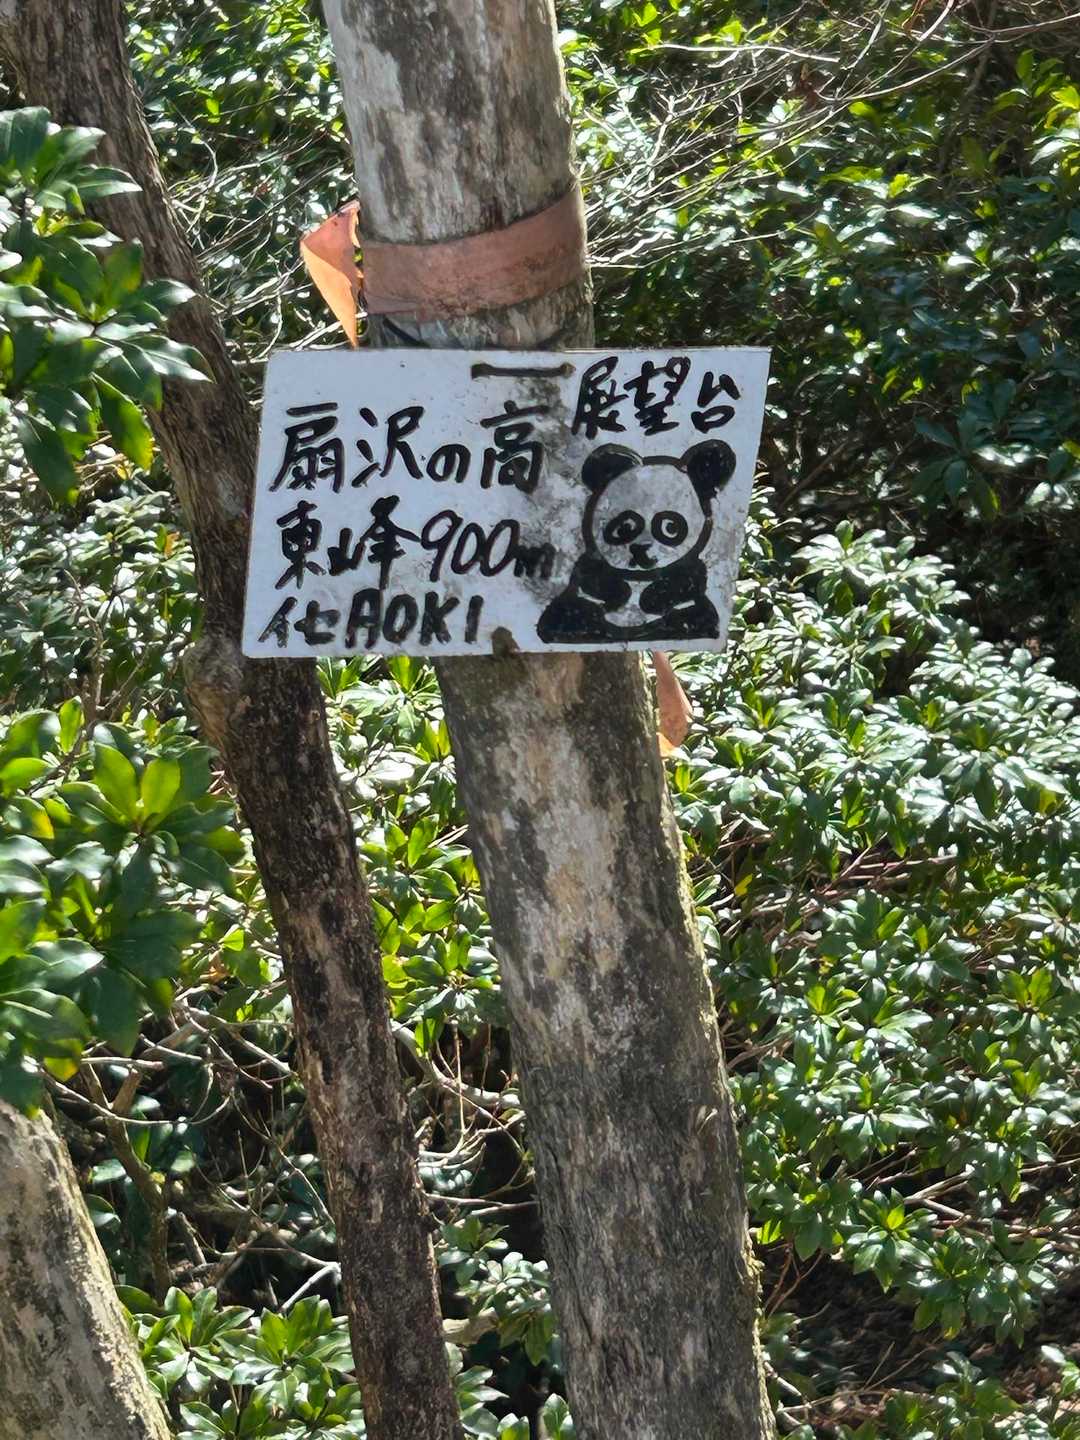 展望台
扇沢の高
東峰900m
化AOKI